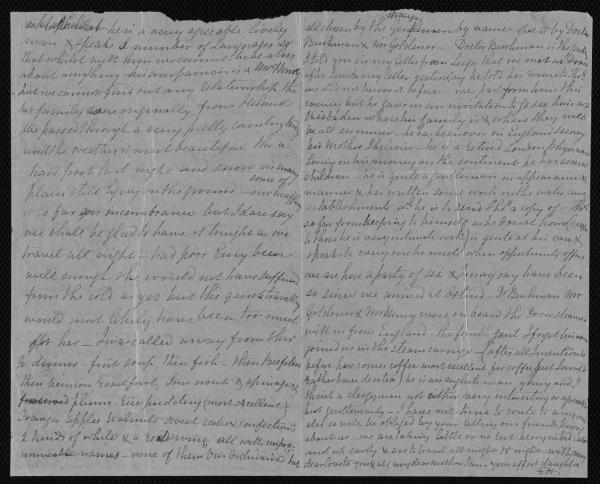 he is a very agreeable lively
man & speaks a number of languages so
that whilst with him we cannot be at a loss
about anything his companion is a Mr Henry
but we cannot find out any relationship tho
his family were originally from Ireland
We passed through a very pretty country
until the weather is most beautiful tho a
hard frost last night and snow in many
some of
places still lying on the ground my muff
is so far an incumbrance but I dare say
we shall be glad to have it tonight as we
travel all night had poor Emy been
well enough she would not have suffered
from the cold as yet but the quick travelling
would most likely have been too much
for her I was called away from this
to dinner first soup then fish then Beefsteak
then venison roast fowl & spinage
preserved plums rice pudding (most excellent)
oranges apples walnuts sweet cakes confection
2 kinds of white & a red wine all with unpro
nounceable names one of them Vin Ordinaire but
strange
all chosen by the gentlemen by name that is by Doctor
Bushman & Mr Goldener Doctor Bushman is the
I told you in my letter from Liege that we met at
after I wrote my letter yesterday he told her name tho I
we did not know it before we part from him this
evening but he gave us an invitation to go see him at
Wisbaden where his family is & where they will
be all summer he has been over in England seeing
his Mother I believe he is a retired London physician
living on his money on the continent he has several
children he is quite a gentleman in appearance &
manners & has written some work on the water cure
establishments & he is to send Thd a copy of
so far from keeping to himself
to those he is very intimate with is quite at his ease &
speaks to every one he meets when opportunity offers
we are here a party of six & I may say have been
so since we arrived at Ostend Dr Bushman Mr
Goldener & Mr Henry were on board the Dover steamer
with us from England the fourth gent I forget his name
joined us in the steam carriage (after all I mentioned
before here comes coffee most excellent for coffee
rather have dear tea) he is an english man young and I
think a clergyman not either very interesting or agreeable
but gentlemanly I have not time to write to any one
else so will be obliged by your letting our friends know
about us we are taking little or no rest being in bed late
and up early & are to travel all night to night with very
dear love to you & all my dear mother I am your affect daughter